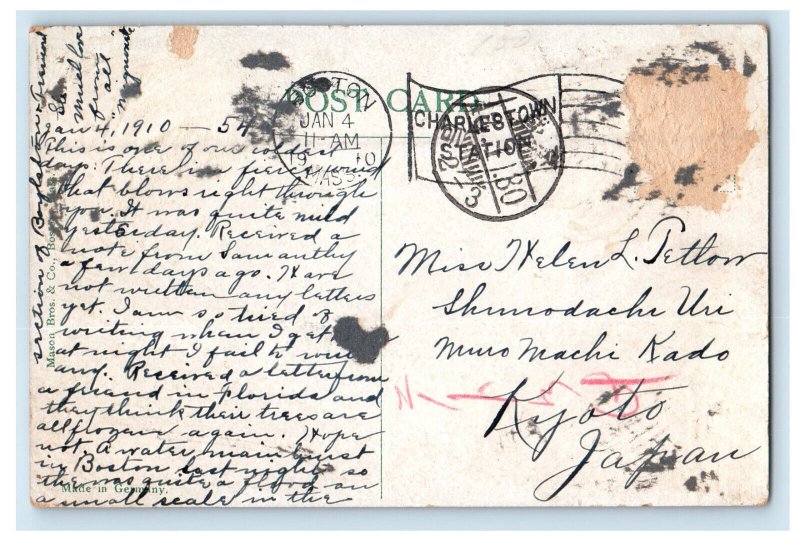 POST CARD
BOSTON
JAN 4
11-AM
MASS.
CHARLESTOWN
STATION
Jan 4, 1910 — 54
This is one of our coldest
days. There is a fierce wind
that blows right through
you. It was quite mild
yesterday. Received a
note from Samanthy
a few days ago. Have
not written any letters
yet. I am so tired of
writing when I get
at night I fail to write
any. Received a letter from
a friend in Florida and
they think their trees are
all frozen again. Hope
not. A water main burst
in Boston last night so
there was quite a flood on
a small scale in the
section of Boylston
Much love
from
all
Marguerite
Mason Bros. & Co., Bos
Made in Germany.
Miss Helen L. Petlow
Shimodachi Uri
Muro Machi Kado
Kyoto
Japan
I.B.O